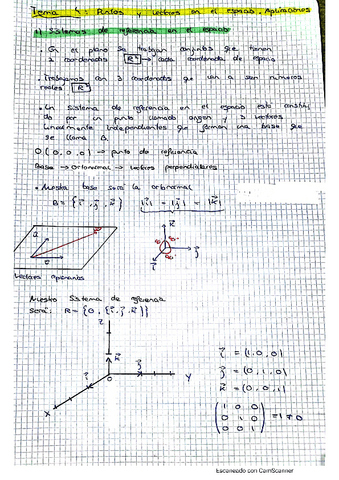 Tema 4: Puntos y vectores en el espacio. Aplicaciones
1) Sistemas de referencia en el espacio
• En el plano se trabajan conjuntos que tienen
2 coordenadas R² → cada coordenada de espacio.
• Trabajamos con 3 coordenadas que van a ser números
reales R³
• Un Sistema de referencia en el espacio está constitui
do por un punto llamado origen y 3 vectores
linealmente independientes que forman una base que
se llama B.
O(0,0,0) → punto de referencia
Base → Ortonormal → vectores perpendiculares
• Nuestra base será la ortonormal
B = {i⃗, j⃗, k⃗} |i⃗| = |j⃗| = |k⃗|
k⃗
j⃗
i⃗
Vectores
Nuestro Sistema de referencia
será: R = {O, {i⃗, j⃗, k⃗}}
Z
k⃗
i⃗ O j⃗ Y
X
i⃗ = (1,0,0)
j⃗ = (0,1,0)
k⃗ = (0,0,1)
1 0 0
0 1 0 = 1 ≠ 0
0 0 1
Escaneado con CamScanner